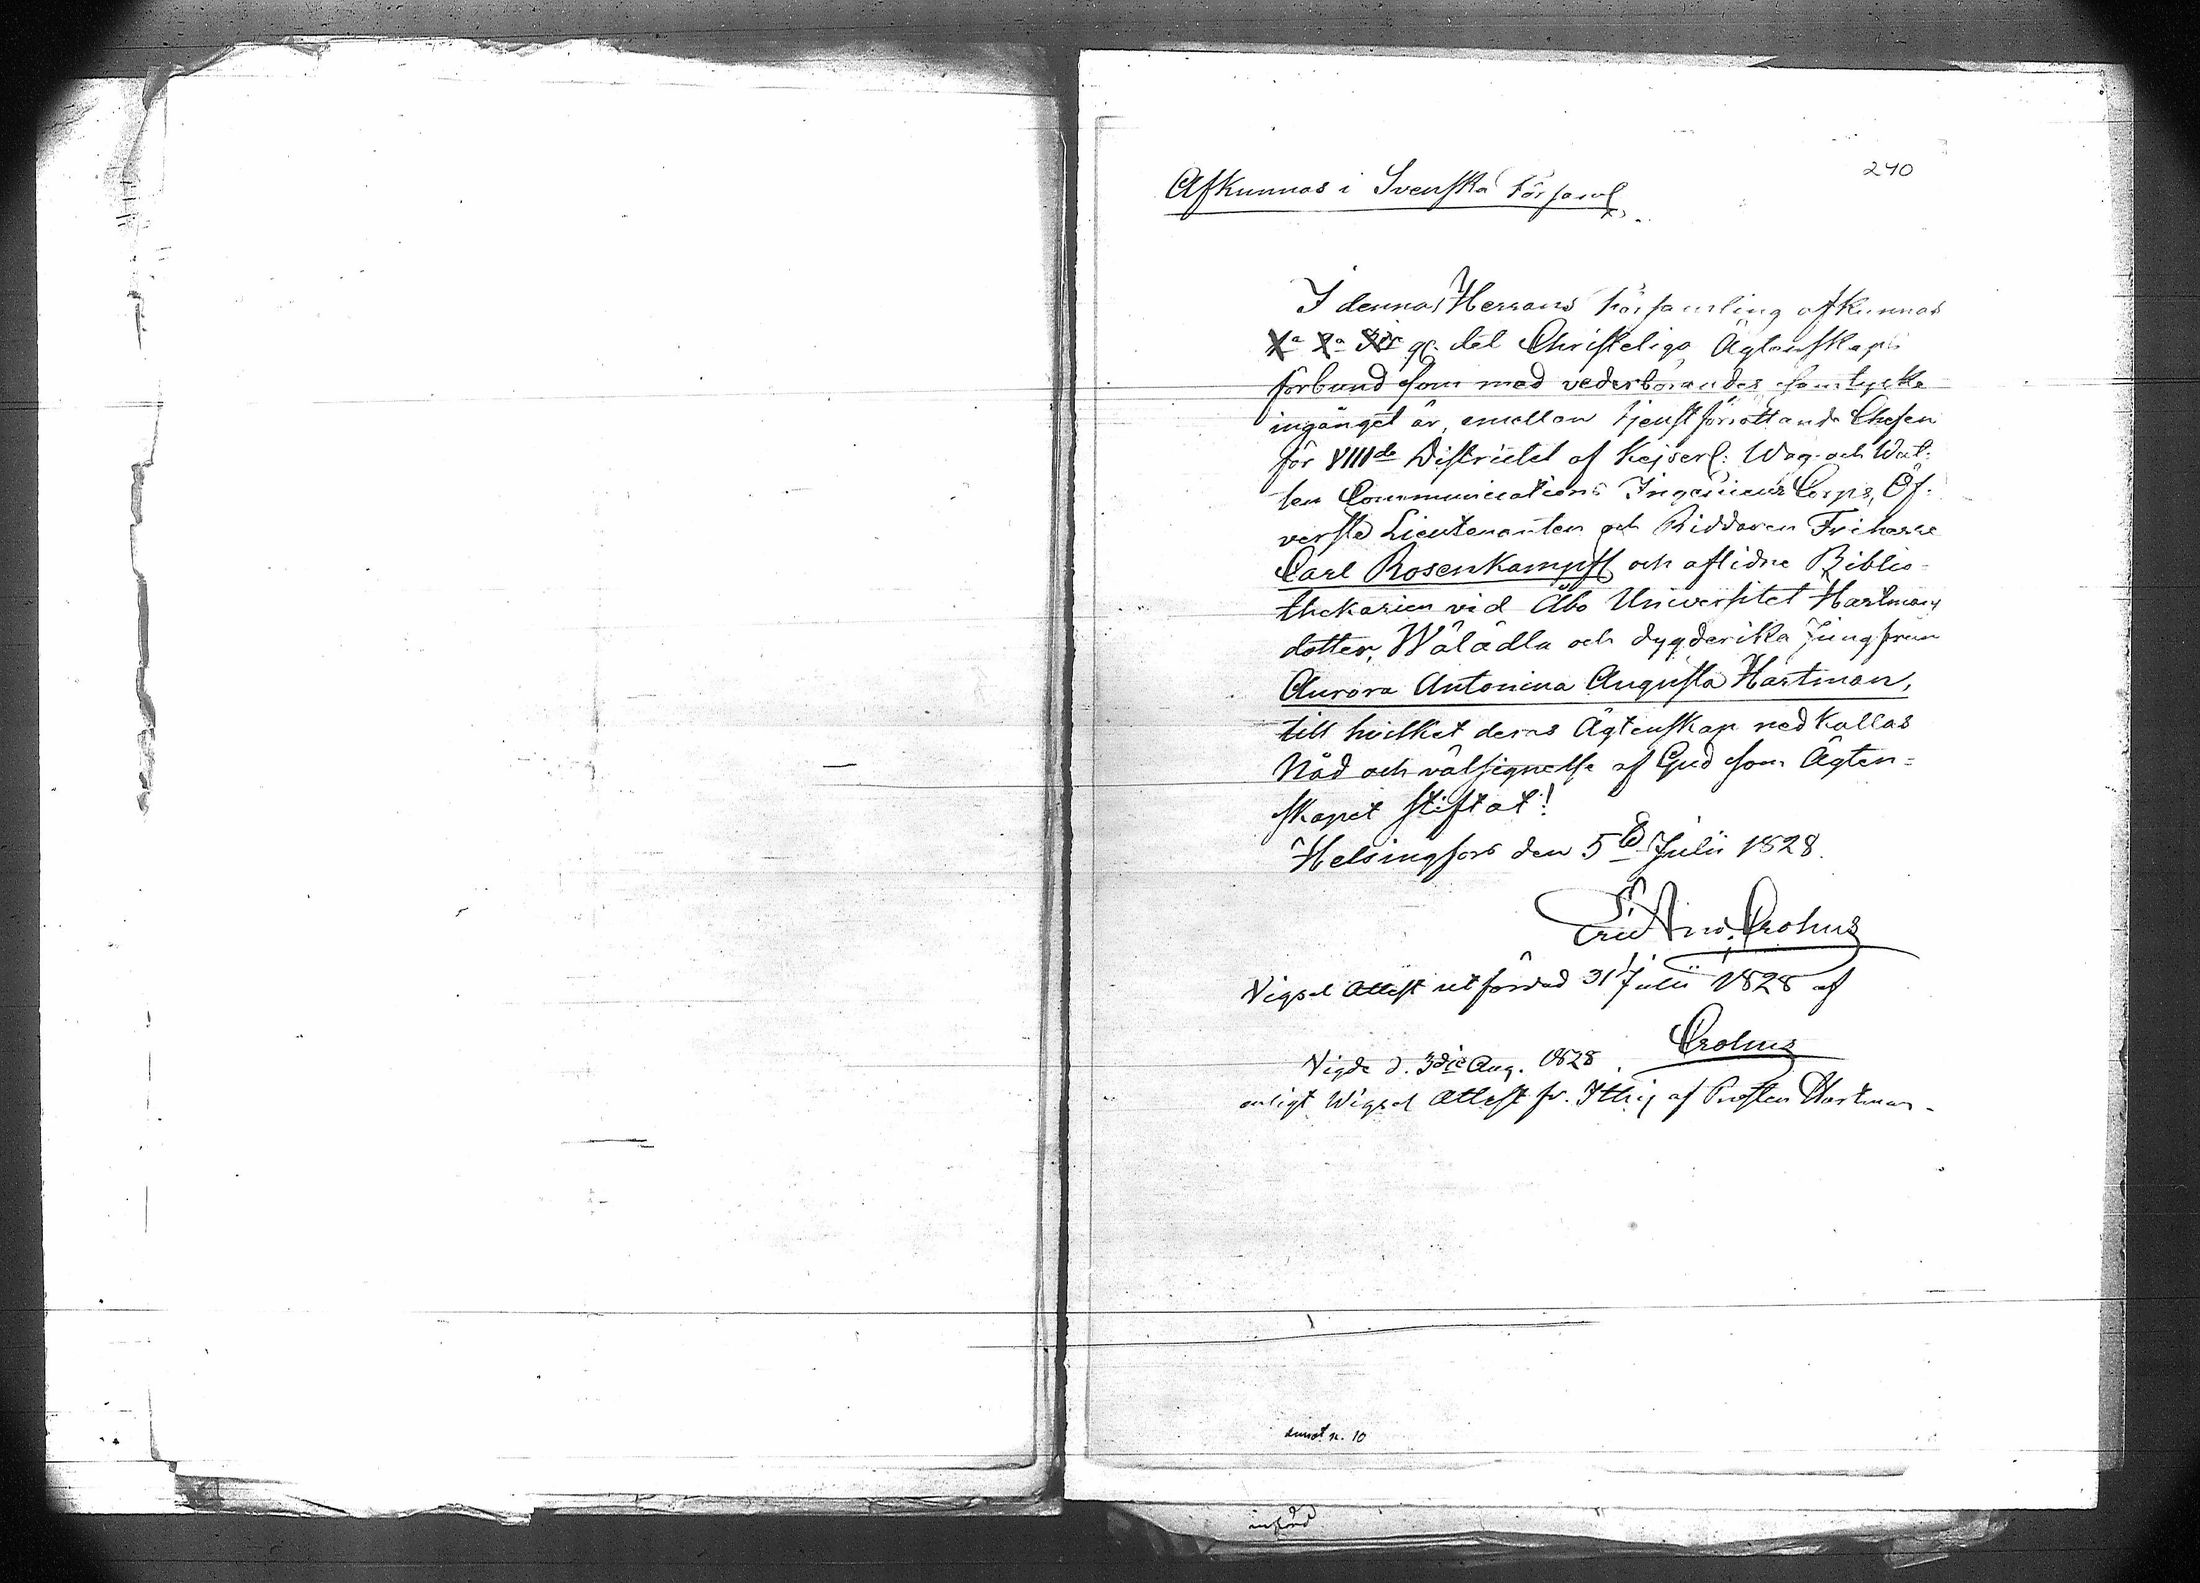 240
Afkunnas i Svenska Församl
I denna Herrans Församling afkunnas
det Christeliga Ägtenskaps
förbund som med vederbörandes samtycke
ingånget är, emellan tjenstförrättande Chefen
för VIIIde Districtet af Kejserl: Wäg- och Wat-
ten Communications Ingenieurs Corps, Öf-
verste Lieutenanten och Riddaren Friherre
Carl Rosenkampff och aflidne Biblio-
thekarien vid Åbo Universitet Hartmans
dotter, Wälädla och dygderika Jungfrun
Aurora Antonina Augusta Hartman,
till hvilket deras Ägtenskap nedkallas
Nåd och välsignelse af Gud som Ägten-
skapet stiftat!
Helsingfors den 5te Julii 1828.
Crohns
Vigsel Attest utfärdad 31 Julii 1828 af
Crohns
Vigde d. 3die Aug. 1828
enligt Wigsel Attest fr. af Prosten Hartman.
n. 10
införd